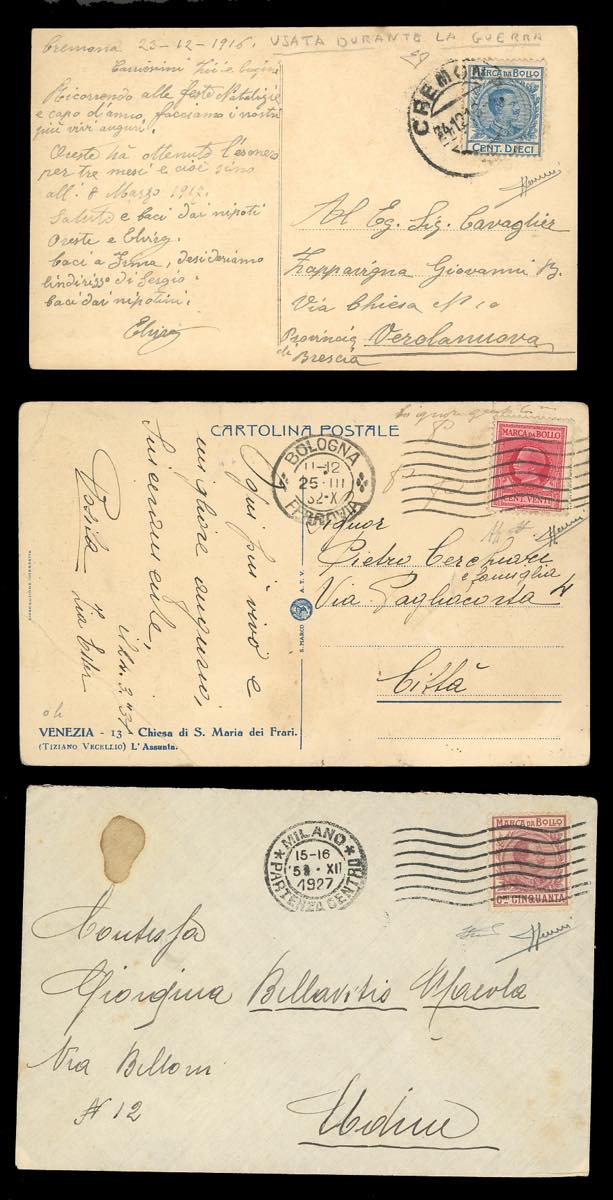 Cremona 23-12-1916. USATA DURANTE LA GUERRA
Carissimi Zii e Cugini
Ricorrendo alle feste Natalizie
e capo d'anno, facciamo i nostri
più vivi auguri.
Oreste ha ottenuto l'esonero
per tre mesi e cioè sino
all' 8 Marzo 1917.
Saluto e baci dai nipoti
Oreste e Elvira.
baci a Irma, desideriamo
lindirisso di Sergio.
baci dai nipotini.
Elvira
CREMONA
MARCA DA BOLLO
CENT. DIECI
Al Eg. Sig. Cavaglier
Zapparigna Giovanni B.
Via Chiesa N° 10
Provincia Verolanuova
di Brescia
CARTOLINA POSTALE
BOLOGNA
11-12
25·III
32·X
FERROVIA
MARCA DA BOLLO
CENT. VENTI
I più vivi e
migliori auguri,
sinceramente,
Rosita
Via Ester
S. MARCO A. T. V.
Signor
Pietro Cerchiari
e famiglia
Via Pagliacorta 4
Città
VENEZIA - 13 - Chiesa di S. Maria dei Frari.
(TIZIANO VECELLIO) L'Assunta.
MILANO
15-16
XII
1927
PARTENZA CENTRO
MARCA DA BOLLO
CMI CINQUANTA
Contessa
Giorgina Bellavitis Macola
Via Belloni
N 12
Udine